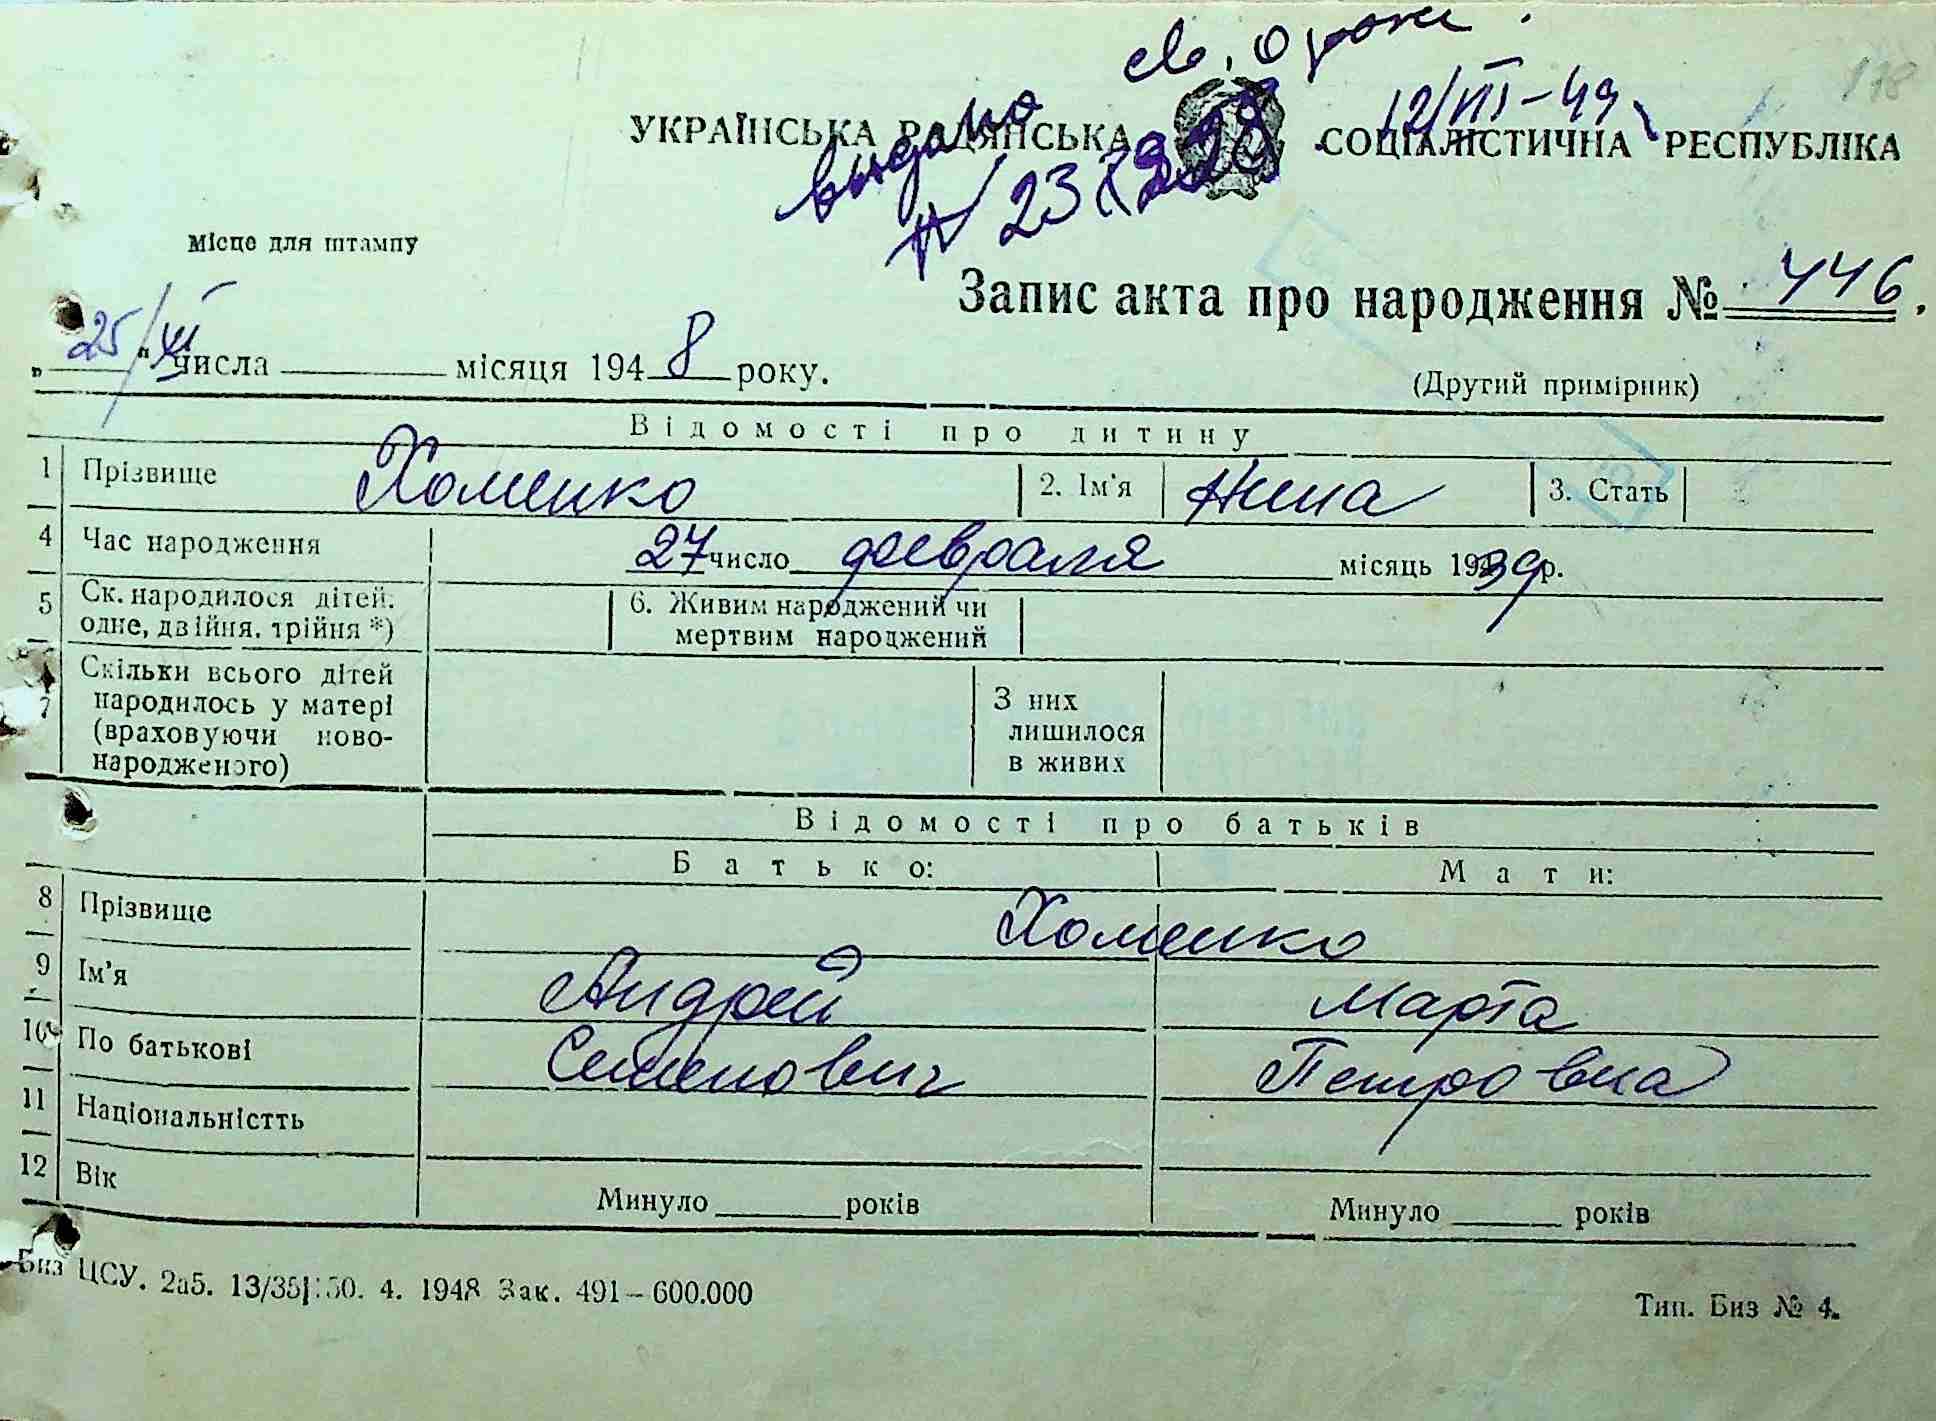 св. о рож.
выдано
12/III-49
УКРАЇНСЬКА РАДЯНСЬКА СОЦІАЛІСТИЧНА РЕСПУБЛІКА
Місце для штампу
Запис акта про народження № 446.
„25/XI" числа місяця 1948 року.
(Другий примірник)
Відомості про дитину
1 Прізвище Хоменко 2. Ім'я Нина 3. Стать
4 Час народження 27 число февраля місяць 1939р.
5 Ск. народилося дітей: одне, двійня, трійня *) 6. Живим народжений чи мертвим народжений
7 Скільки всього дітей народилось у матері (враховуючи ново-народженого) З них лишилося в живих
Відомості про батьків
Батько: Мати:
8 Прізвище Хоменко
9 Ім'я Андрей Марта
10 По батькові Семенович Петровна
11 Національністть
12 Вік Минуло років Минуло років
Биз ЦСУ. 2а5. 13/35 30. 4. 1948 Зак. 491–600.000
Тип. Биз № 4.